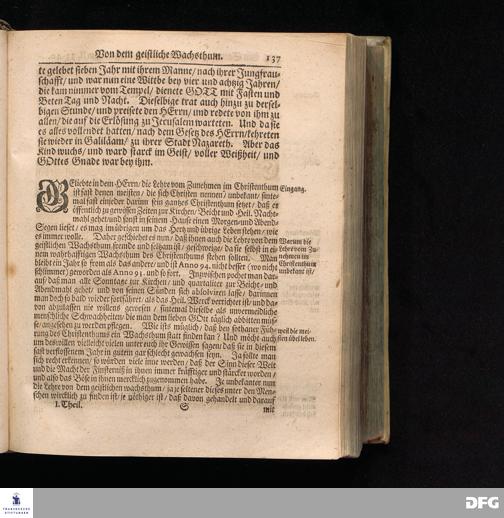 Von dem geistliche Wachsthum. 137
te gelebet sieben Jahr mit ihrem Manne/ nach ihrer Jungfrau-
schafft/ und war nun eine Wittbe bey vier und achtzig Jahren/
die kam nimmer vom Tempel/ dienete GOTT mit Fasten und
Beten Tag und Nacht. Dieselbige trat auch hinzu zu dersel-
bigen Stunde/ und preisete den HErrn/ und redete von ihm zu
allen/ die auf die Erlösung zu Jerusalem warteten. Und da sie
es alles vollendet hatten/ nach dem Gesez des HErrn/ kehreten
sie wieder in Galiläam/ zu ihrer Stadt Nazareth. Aber das
Kind wuchs/ und ward starck im Geist/ voller Weißheit/ und
GOttes Gnade war bey ihm.
GEliebte in dem HErrn/ die Lehre vom Zunehmen im Christenthum
ist fast denen meisten/ die sich Christen nennen/ unbekant/ sinte-
mal fast einjeder darinn sein gantzes Christenthum setzet/ daß er
öffentlich zu gewissen Zeiten zur Kirchen/ Beicht und Heil. Nacht-
mahl gehet/ und sonst in seinem Hause einen Morgen- und Abend-
Segen lieset/ es mag im übrigen um das Hertz und übrige Leben stehen/ wie
es immer wolle. Daher geschiehet es nun/ daß ihnen auch die Lehre von dem
geistlichen Wachsthum frembde und seltzam ist/ geschweige/ daß sie selbst in ei-
nem wahrhafftigen Wachsthum des Christenthums stehen solten. Man
bleibt ein Jahr so from als das andere/ und ist Anno 94. nicht besser (wo nicht
schlimmer) geworden als Anno 91. und so fort. Inzwischen pochet man dar-
auf daß man alle Sonntage zur Kirchen/ und quartaliter zur Beicht- und
Abendmahl gehet/ und von seinen Sünden sich absolviren lasse/ darinnen
man doch so bald wieder fortfähret/ als das Heil. Werck verrichtet ist/ und da-
von abzulassen nie willens gewesen/ sintemal dieselbe als unvermeidliche
menschliche Schwachheiten/ die man dem lieben GOtt täglich abbitten müs-
se/ angesehen zu werden pflegen. Wie ists müglich/ daß bey sothaner Füh-
rung des Christenthums ein Wachsthum statt finden kan? Und möcht auch
um des willen vielleicht vielen unter euch ihr Gewissen sagen/ daß sie in diesem
fast verflossenem Jahr in gutem gar schlecht gewachsen seyn. Ja solte man
sich recht erkennen/ so würden viele inne werden/ daß der Sinn dieser Welt
und die Macht der Finsterniß in ihnen immer kräfftiger und stärcker worden/
und also das Böse in ihnen mercklich zugenommen habe. Je unbekanter nun
die Lehre von dem geistlichen wachsthum/ ja je seltener dieses unter den Men-
schen wircklich zu finden ist/ je nöthiger ist/ daß davon gehandelt und darauf
I. Theil. S mit
Eingang.
Warum die
Lehre vom Zu-
nehmen im
Christenthum
unbekant ist/
weil die mei-
sten übel leben.
FRANCKESCHE
STIFTUNGEN
DFG